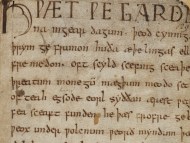 HǷÆT ǷE GARD
na ingear dagum. þeod cyning
þrym ge frunon huða æþelingas ell
fre medon. oft scyld scefing sceaþe
þreatum monegū mægþum meodo setl
of teah egsode eorl syððan ærest ƿe
fea sceaft funden he þæs frofre ge
ƿeox under ƿolcnum ƿeorð myndum þah